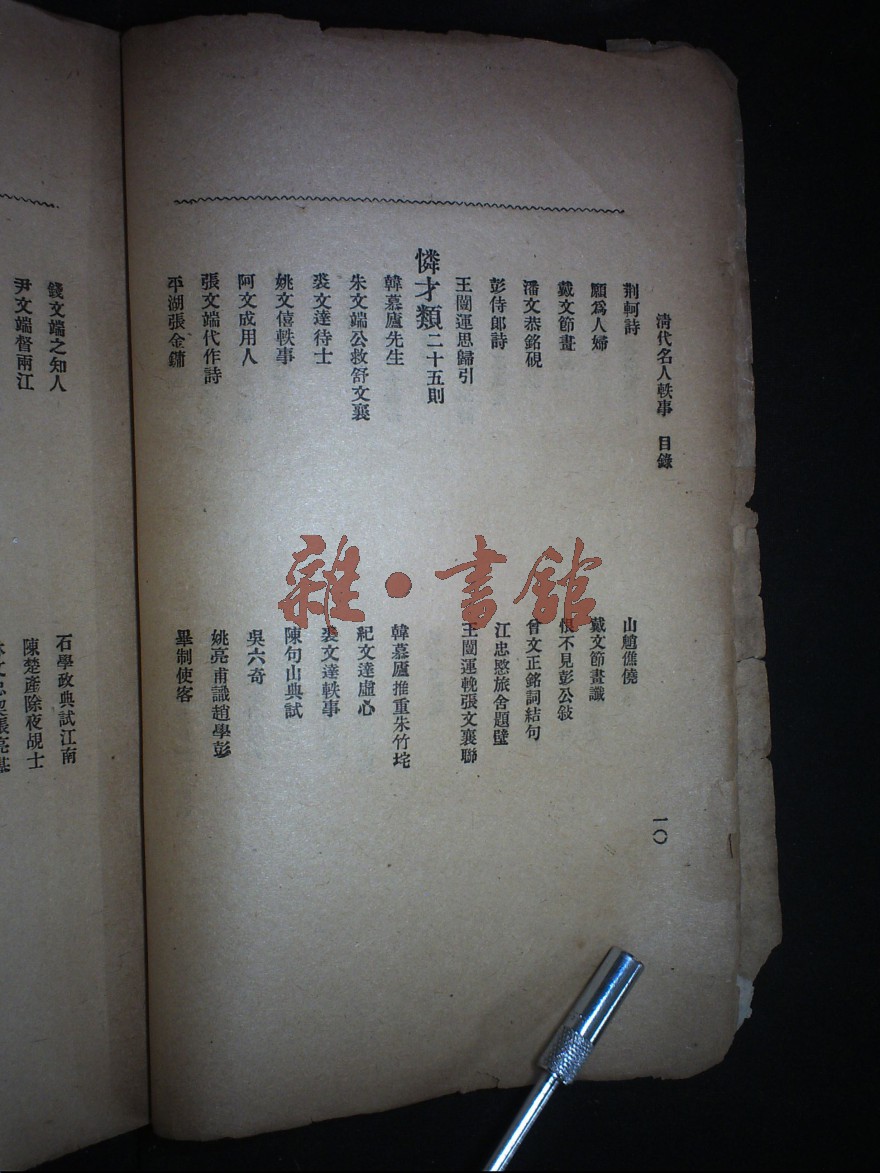 清代名人軼事　目錄
一〇
荆軻詩
山魈僬僥
願爲人婦
戴文節畫讖
戴文節畫
恨不見彭公敍
潘文恭銘硯
曾文正銘詞結句
彭侍郎詩
江忠愍旅舍題壁
王闓運思歸引
王闓運輓張文襄聯
憐才類二十五則
韓慕廬先生
韓慕廬推重朱竹垞
朱文端公救舒文襄
紀文達虛心
裘文達待士
裘文達軼事
姚文僖軼事
陳句山典試
阿文成用人
吳六奇
張文端代作詩
姚亮甫識趙學彭
平湖張金鏞
畢制使客
錢文端之知人
石學政典試江南
尹文端督兩江
陳楚產除夜覘士
雜·書館